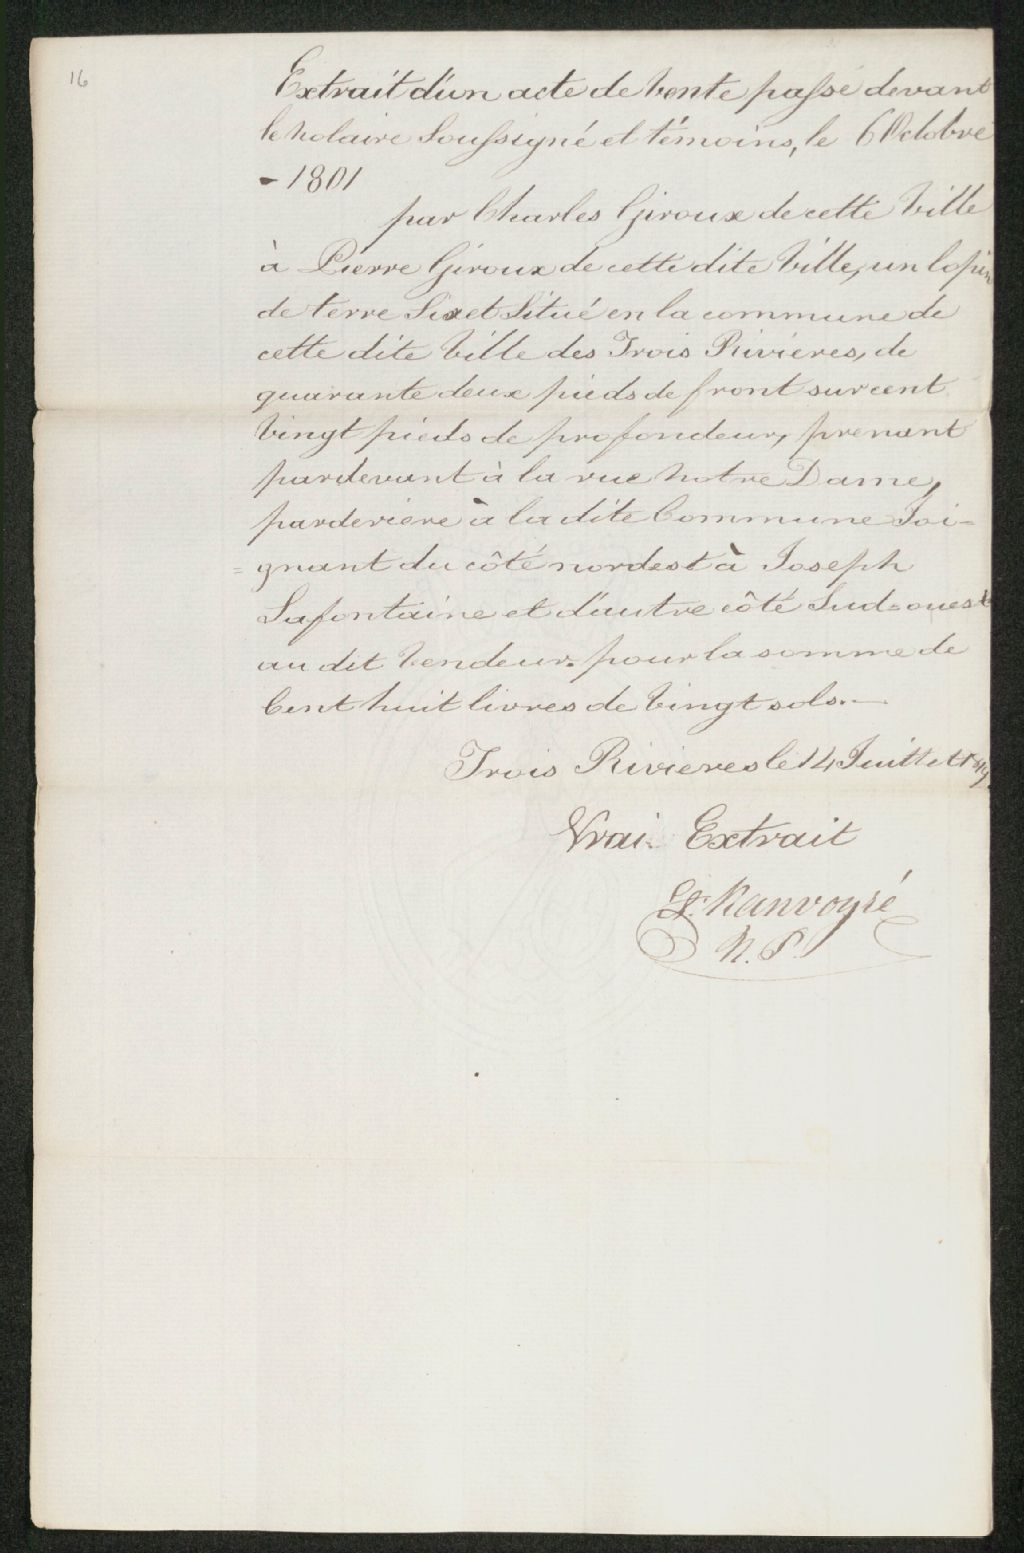 16
Extrait d'un acte de vente passé devant
le Notaire Soussigné et témoins, le 6 Octobre
- 1801
par Charles Giroux de cette Ville
à Pierre Giroux de cette dite Ville, un lopin
de terre Sis et Situé en la commune de
cette dite Ville des Trois Rivieres, de
quarante deux pieds de front sur cent
Vingt pieds de profondeur, prenant
pardevant à la rue Notre Dame,
parderiere à la dite Commune Joi=
=gnant du côté nordest à Joseph
Lafontaine et d'autre côté Sud=ouest
au dit Vendeur. pour la somme de
Cent huit livres de Vingt sols.—
Trois Rivieres le 14 Juillet
Vrai Extrait
Ranvoyzé
N. P.